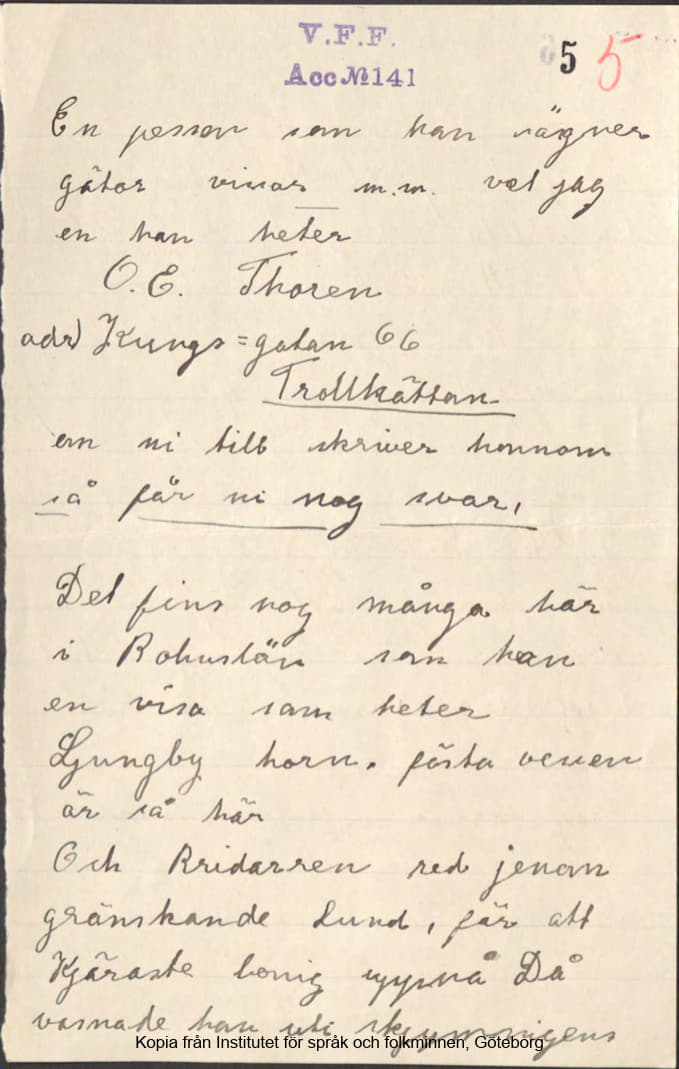 V.F.F.
Acc № 141
5 5
En person som kan sägner
gåtor visor m.m. vet jag
en han heter
O.E. Thoren
adr) Kungs=gatan 66
Trollhättan
om ni till skriver honnom
så får ni nog svar,
Det fins nog många här
i Bohuslän som kan
en visa som heter
Ljungby horn. fösta versen
är så här
Och Rridarren red jenom
gränskande Lund, får att
Kjäraste uppnå Då
han uti skymningens
Kopia från Institutet för språk och folkminnen, Göteborg